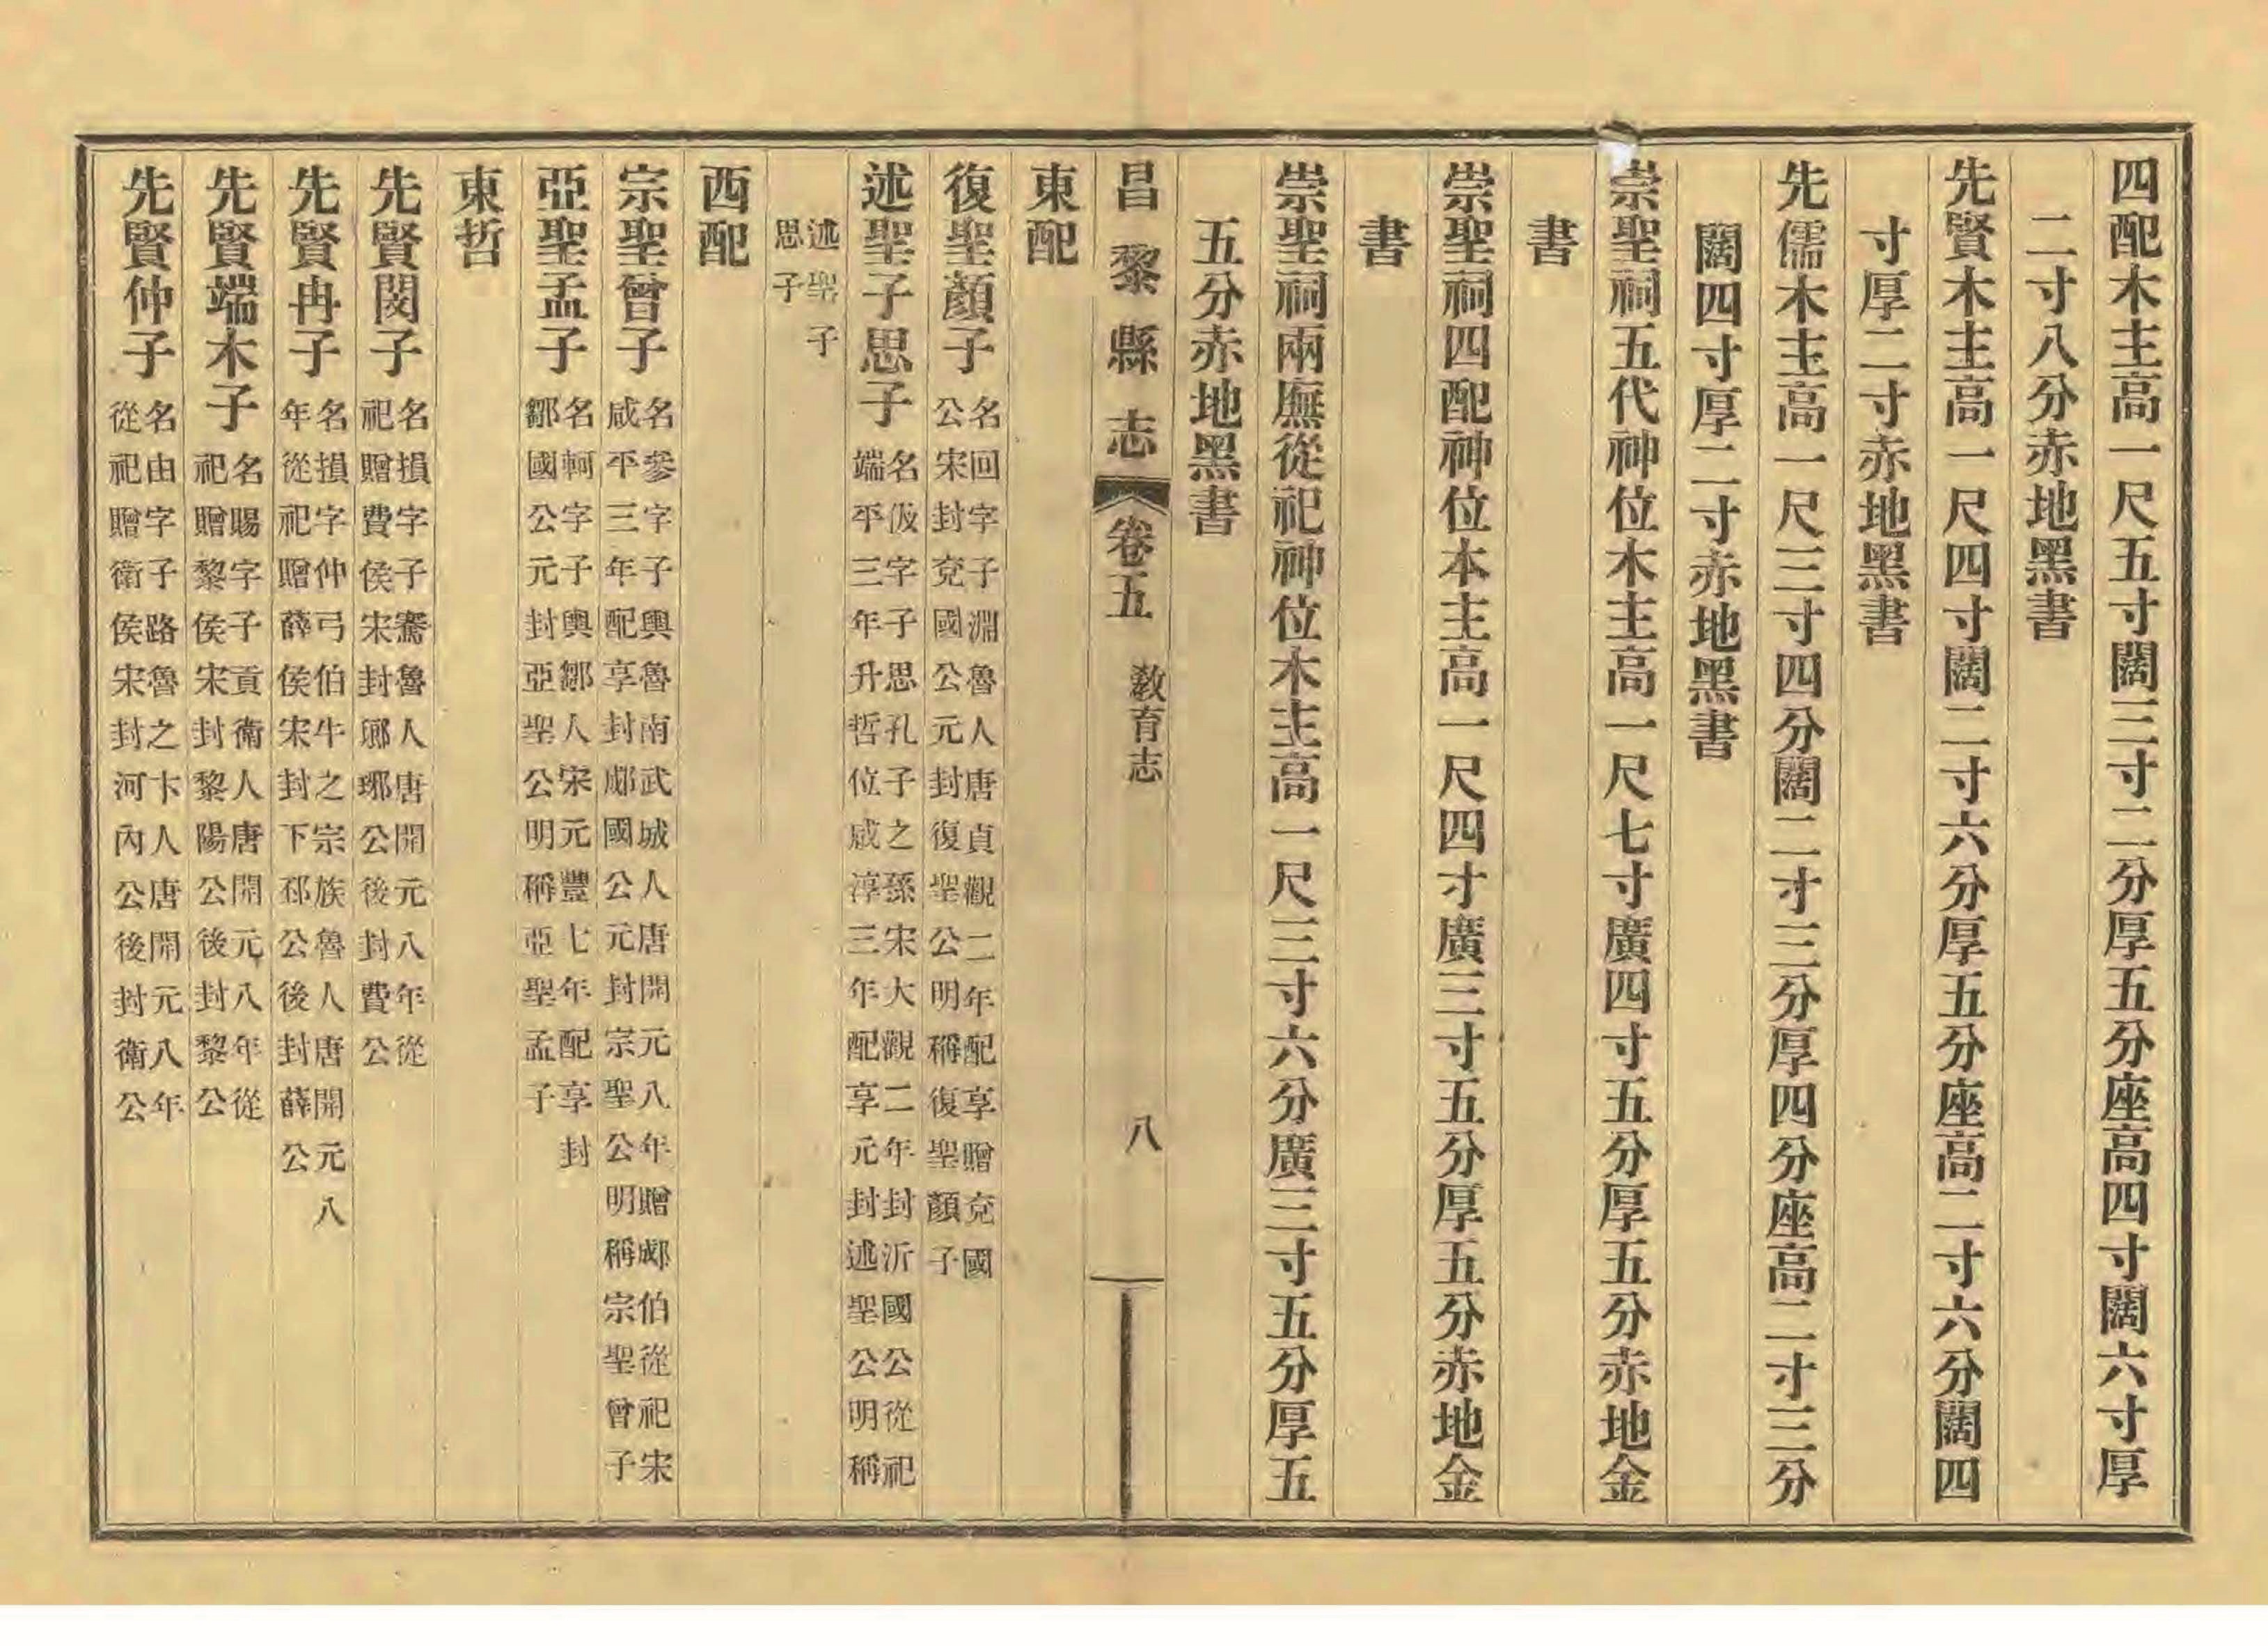 四配木主高一尺五寸闊三寸二分厚五分座高四寸闊六寸厚
二寸八分赤地黑書
先賢木主高一尺四寸闊二寸六分厚五分座高二寸六分闊四
寸厚二寸赤地黑書
先儒木主高一尺三寸四分闊二寸三分厚四分座高二寸三分
闊四寸厚二寸赤地黑書
崇聖祠五代神位木主高一尺七寸廣四寸五分厚五分赤地金
書
崇聖祠四配神位本主高一尺四寸廣三寸五分厚五分赤地金
書
崇聖祠兩廡從祀神位木主高一尺三寸六分廣三寸五分厚五
五分赤地黑書
昌黎縣志 卷五 教育志 八
東配
復聖顏子 名回字子淵魯人唐貞觀二年配享贈兗國
公宋封兗國公元封復聖公明稱復聖顏子
述聖子思子 名伋字子思孔子之孫宋大觀二年封沂國公從祀
端平三年升哲位咸淳三年配享元封述聖公明稱
述聖子
思子
西配
宗聖曾子 名參字子輿魯南武城人唐開元八年贈郕伯從祀宋
咸平三年配享封郕國公元封宗聖公明稱宗聖曾子
亞聖孟子 名軻字子輿鄒人宋元豐七年配享封
鄒國公元封亞聖公明稱亞聖孟子
東哲
先賢閔子 名損字子騫魯人唐開元八年從
祀贈費侯宋封瑯琊公後封費公
先賢冉子 名損字仲弓伯牛之宗族魯人唐開元八
年從祀贈薛侯宋封下邳公後封薛公
先賢端木子 名賜字子貢衛人唐開元八年從
祀贈黎侯宋封黎陽公後封黎公
先賢仲子 名由字子路魯之卞人唐開元八年
從祀贈衛侯宋封河內公後封衛公